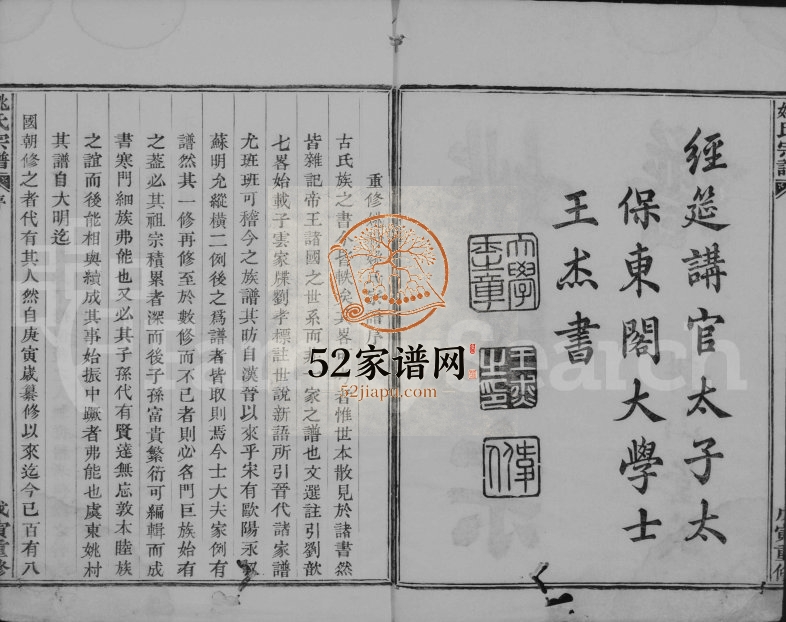 經筵講官太子太
保東閣大學士
王杰書
大學
士章
王杰
之印
姚氏宗譜
戊寅重修
重修
序
古氏族之書
者惟世本散見於諸書然
皆雜記帝王諸國之世系而
家之譜也文選註引劉歆
七畧始載子雲家牒劉孝標註世說新語所引晉代諸家譜
尤班班可稽今之族譜其昉自漢晉以來乎宋有歐陽永叔
蘇明允縱橫二例後之爲譜者皆取則焉今士大夫家例有
譜然其一修再修至於數修而不已者則必名門巨族始有
之葢必其祖宗積累者深而後子孫富貴繁衍可編輯而成
書寒門細族弗能也又必其子孫代有賢達無忘敦本睦族
之誼而後能相與續成其事始振中蹶者弗能也虞東姚村
其譜自大明迄
國朝修之者代有其人然自庚寅歲纂修以來迄今已百有八
姚氏宗譜
序
戊寅重修
52家谱网
52jiapu.com